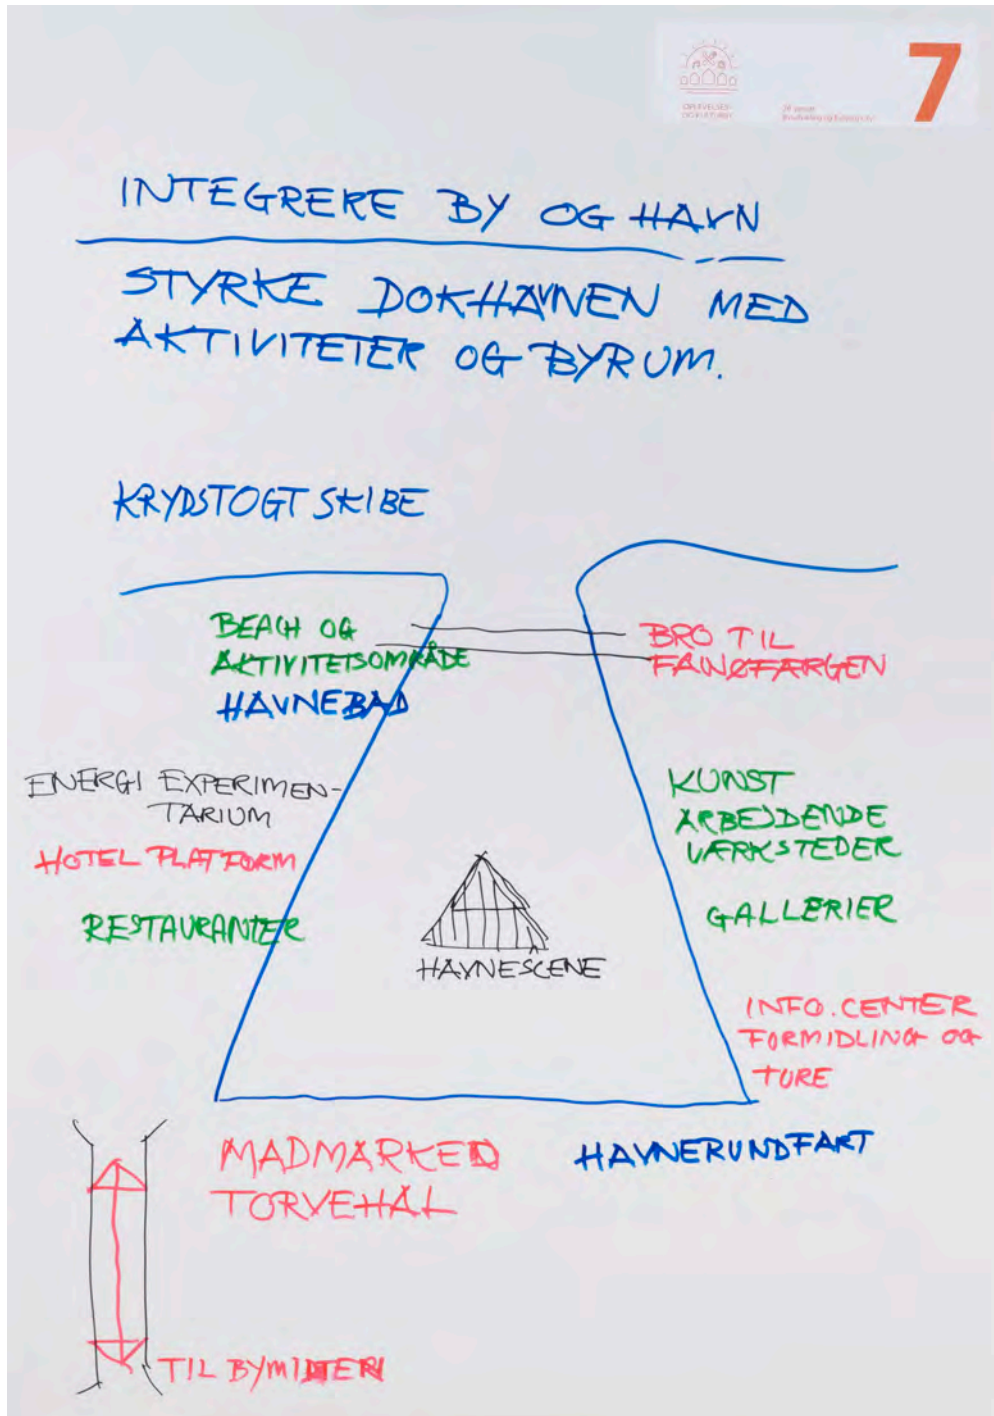 7
OPLEVELSES-
OG KULTURBY
INTEGRERE BY OG HAVN
STYRKE DOKHAVNEN MED
AKTIVITETER OG BYRUM.
KRYDSTOGTSKIBE
BEACH OG
AKTIVITETSOMRÅDE
HAVNEBAD
BRO TIL
FANØFÆRGEN
ENERGI EXPERIMEN-
TARIUM
HOTEL PLATFORM
RESTAURANTER
KUNST
ARBEJDENDE
VÆRKSTEDER
GALLERIER
HAVNESCENE
INFO.CENTER
FORMIDLING OG
TURE
MADMARKED
TORVEHAL
HAVNERUNDFART
TIL BYMIDTEN